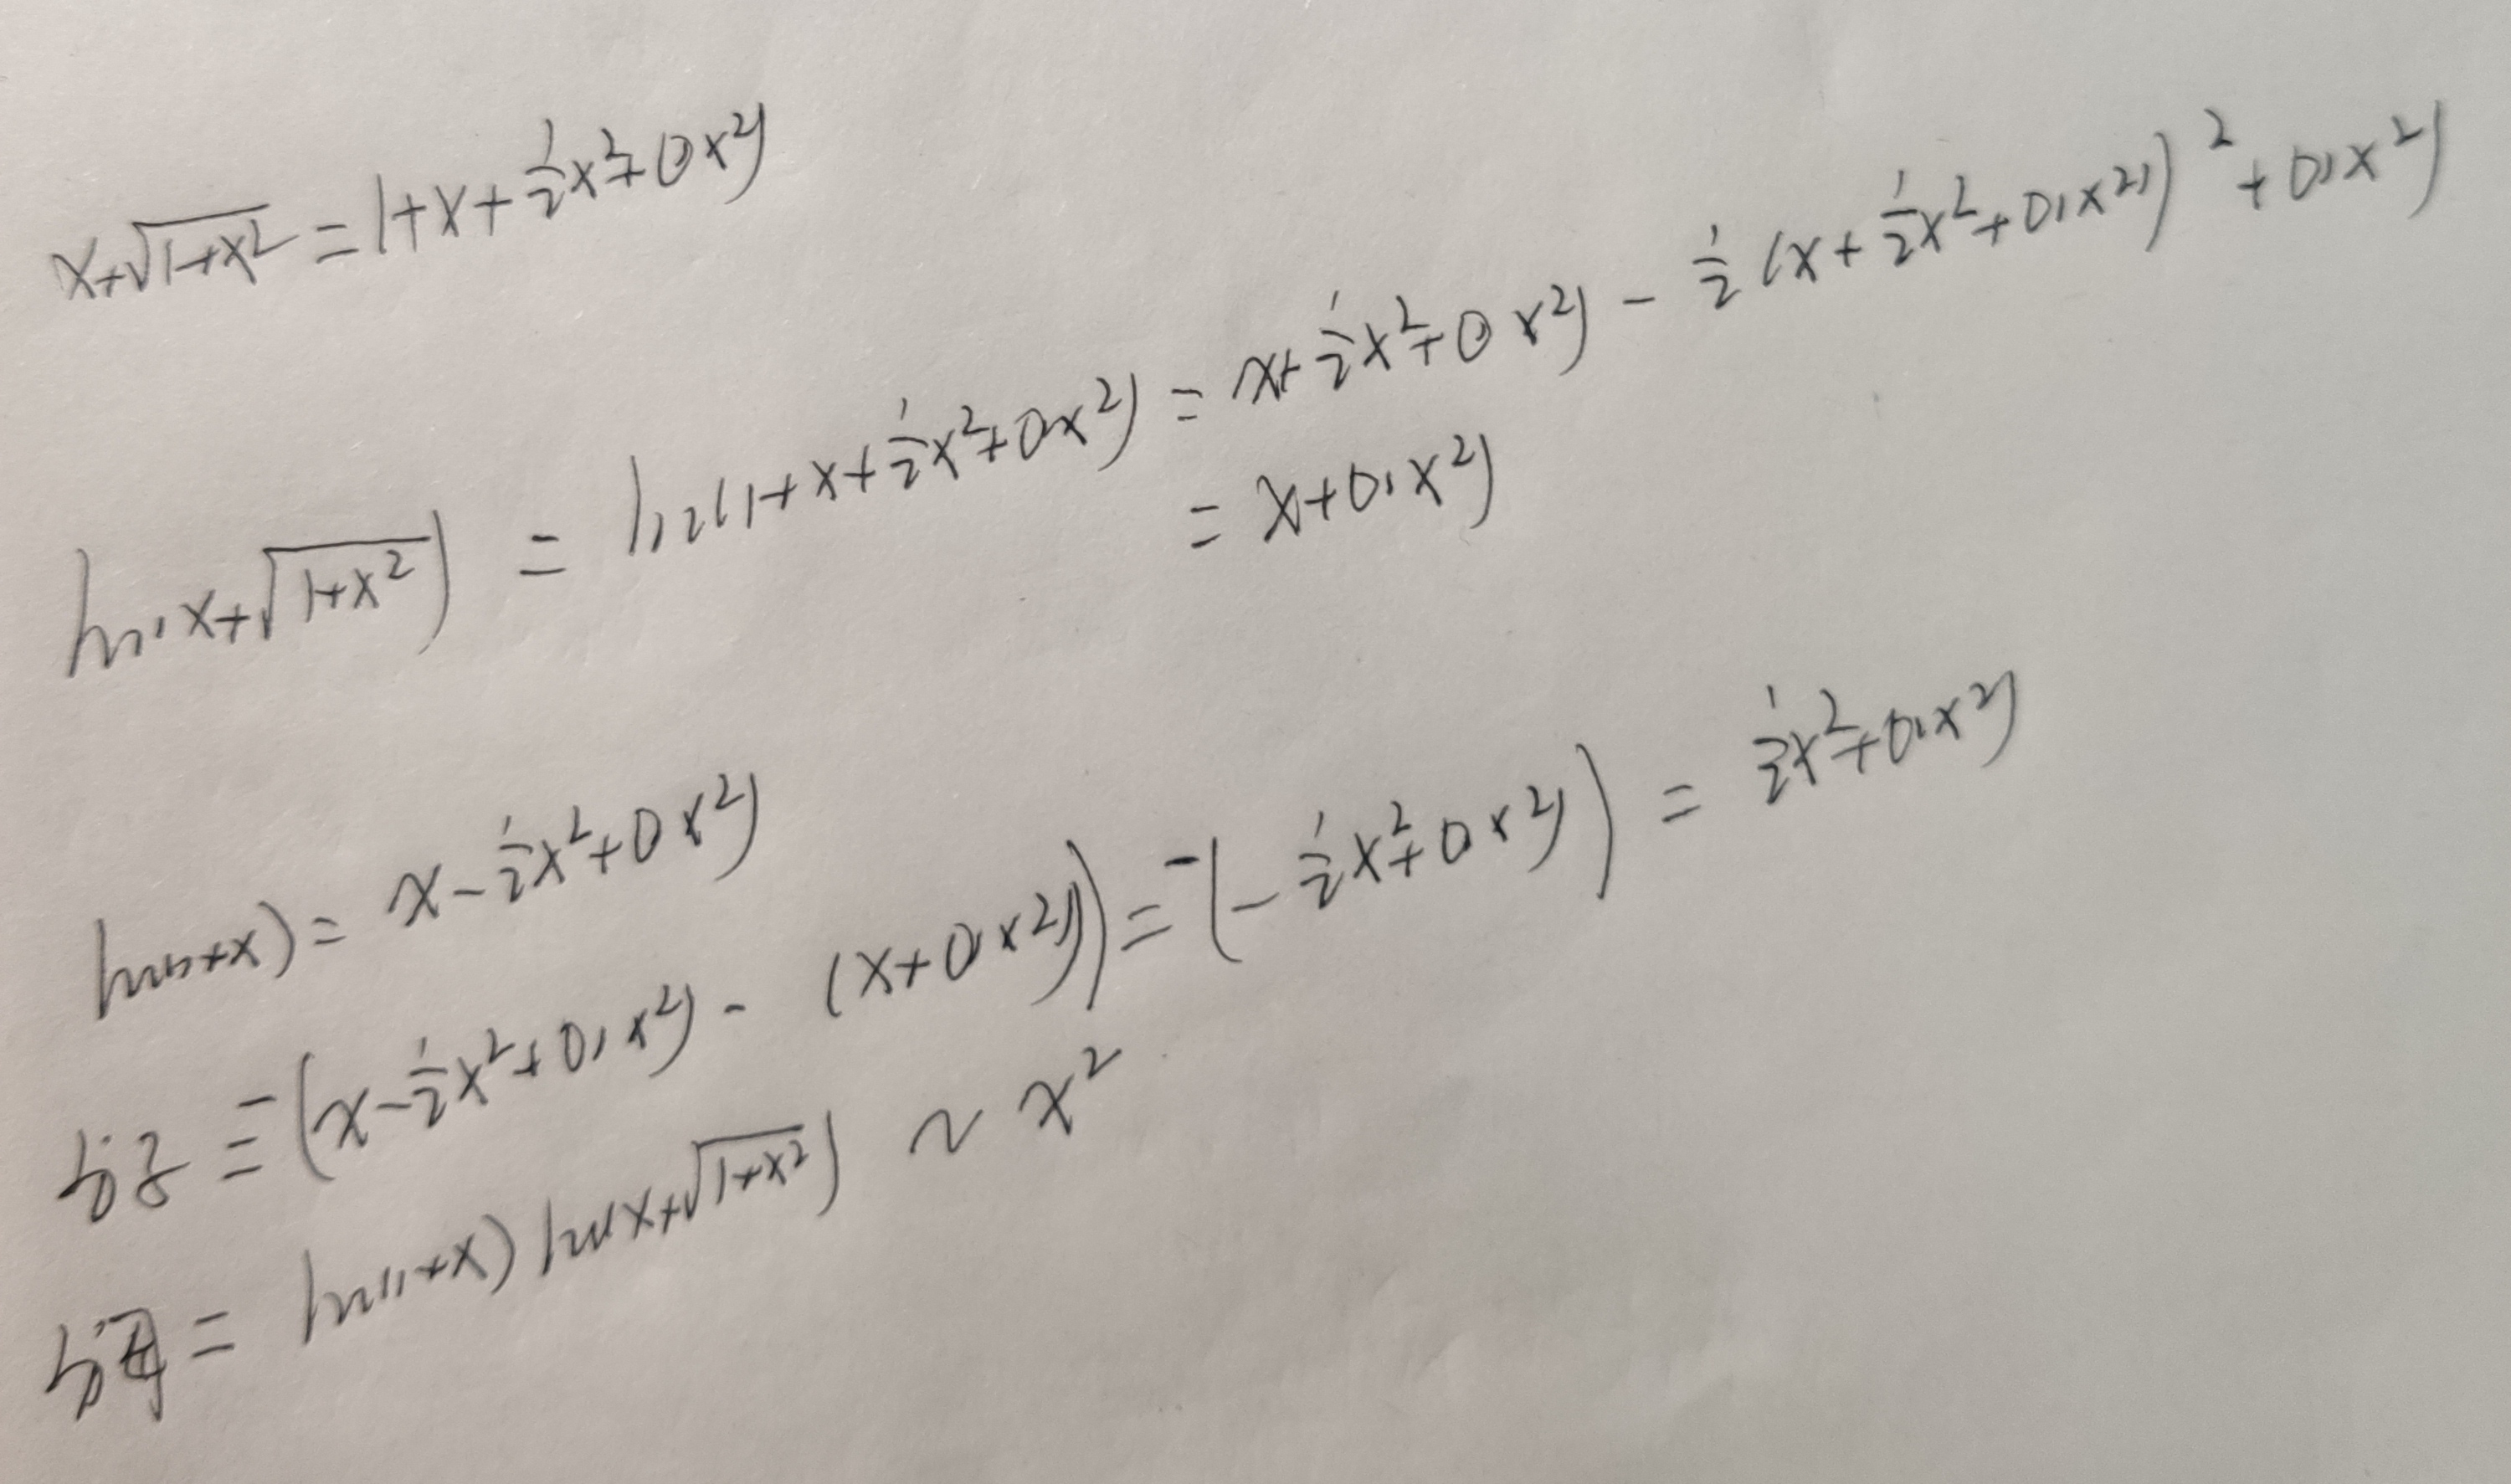 x+√(1+x²) = 1+x+½x²+o(x²)
ln(x+√(1+x²)) = ln(1+x+½x²+o(x²)) = x+½x²+o(x²) - ½(x+½x²+o(x²))²+o(x²)
= x+o(x²)
ln(1+x) = x-½x²+o(x²)
分子 = (x-½x²+o(x²) - (x+o(x²))) = -(-½x²+o(x²)) = ½x²+o(x²)
分母 = ln(1+x) ln(x+√(1+x²)) ~ x²